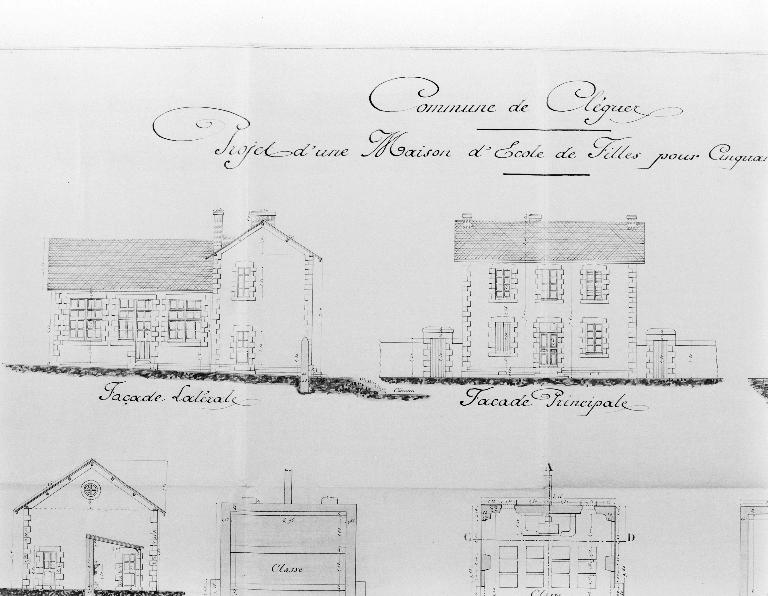 Commune de Cléguer
Projet d'une Maison d'Ecole de Filles pour Cinquan
Façade Latérale
Façade Principale
Classe
C
A
D
Classe